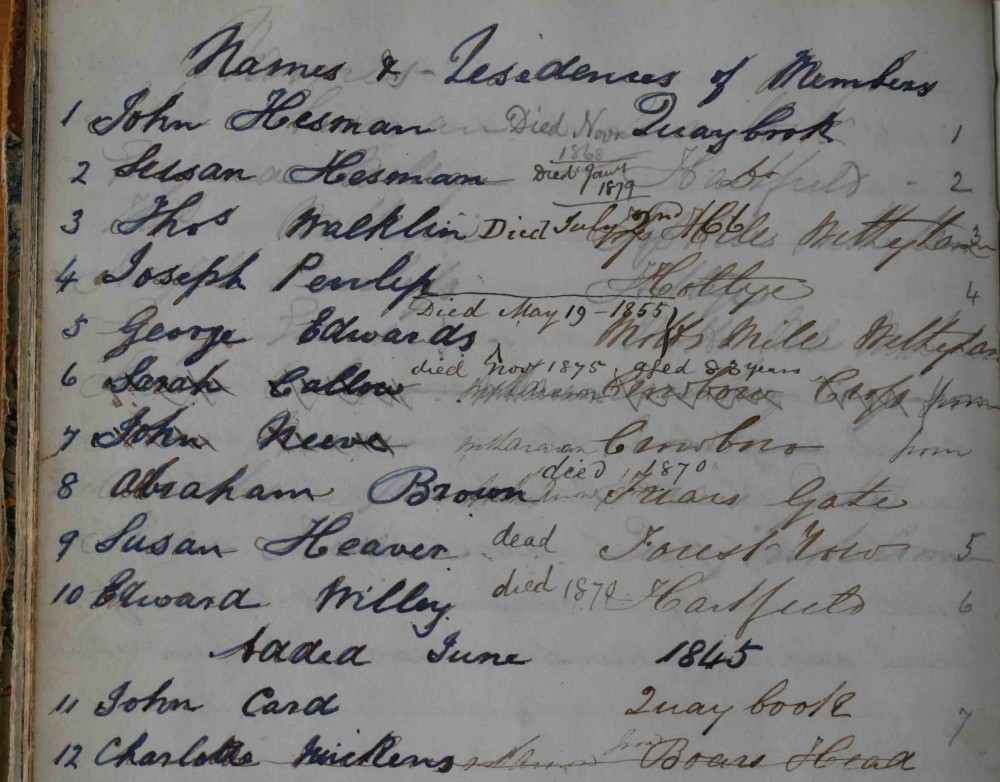 Names & Residences of Members
1 John Hesman Died Novr 1868 Quaybrook 1
2 Susan Hesman Died Jany 1879 Do 2
3 Thos Walklin Died July 2nd /66 Mill Withyham 3
4 Joseph Penlip Holtye 4
Died May 19 - 1855
5 George Edwards Motts Mill Withyham
died Novr 1875 aged 83 years
6 Sarah Callow Crowboro Cross from
7 John Neeve withdrawn Crowboro from
8 Abraham Brown died 1870 Friars Gate
9 Susan Heaver dead Forest Row 5
10 Edward Willey died 1870 Hartfield 6
Added June 1845
11 John Card Quaybook 7
12 Charlotte Mickens Boars Head